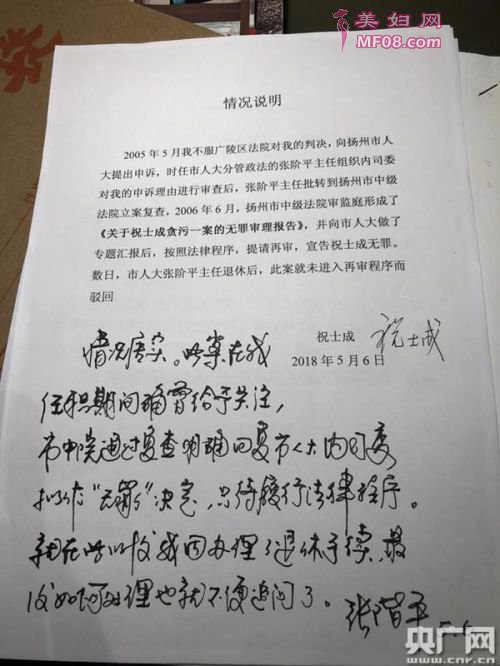 美妇网
MF08.com
情况说明
2005年5月我不服广陵区法院对我的判决，向扬州市人
大提出申诉，时任市人大分管政法的张阶平主任组织内司委
对我的申诉理由进行审查后，张阶平主任批转到扬州市中级
法院立案复查，2006年6月，扬州市中级法院审监庭形成了
《关于祝士成贪污一案的无罪审理报告》，并向市人大做了
专题汇报后，按照法律程序，提请再审，宣告祝士成无罪。
数日，市人大张阶平主任退休后，此案就未进入再审程序而
驳回
祝士成 祝士成
2018年5月6日
情况属实。此案在我
任职期间确曾给予关注，
市中院通过复查明确回复市人大内司委
拟作“无罪”决定，只待履行法律程序。
就在此以后我因办理了退休手续，最
后如何处理也就不便追问了。
张阶平 5.6
央广网
www.cnr.cn